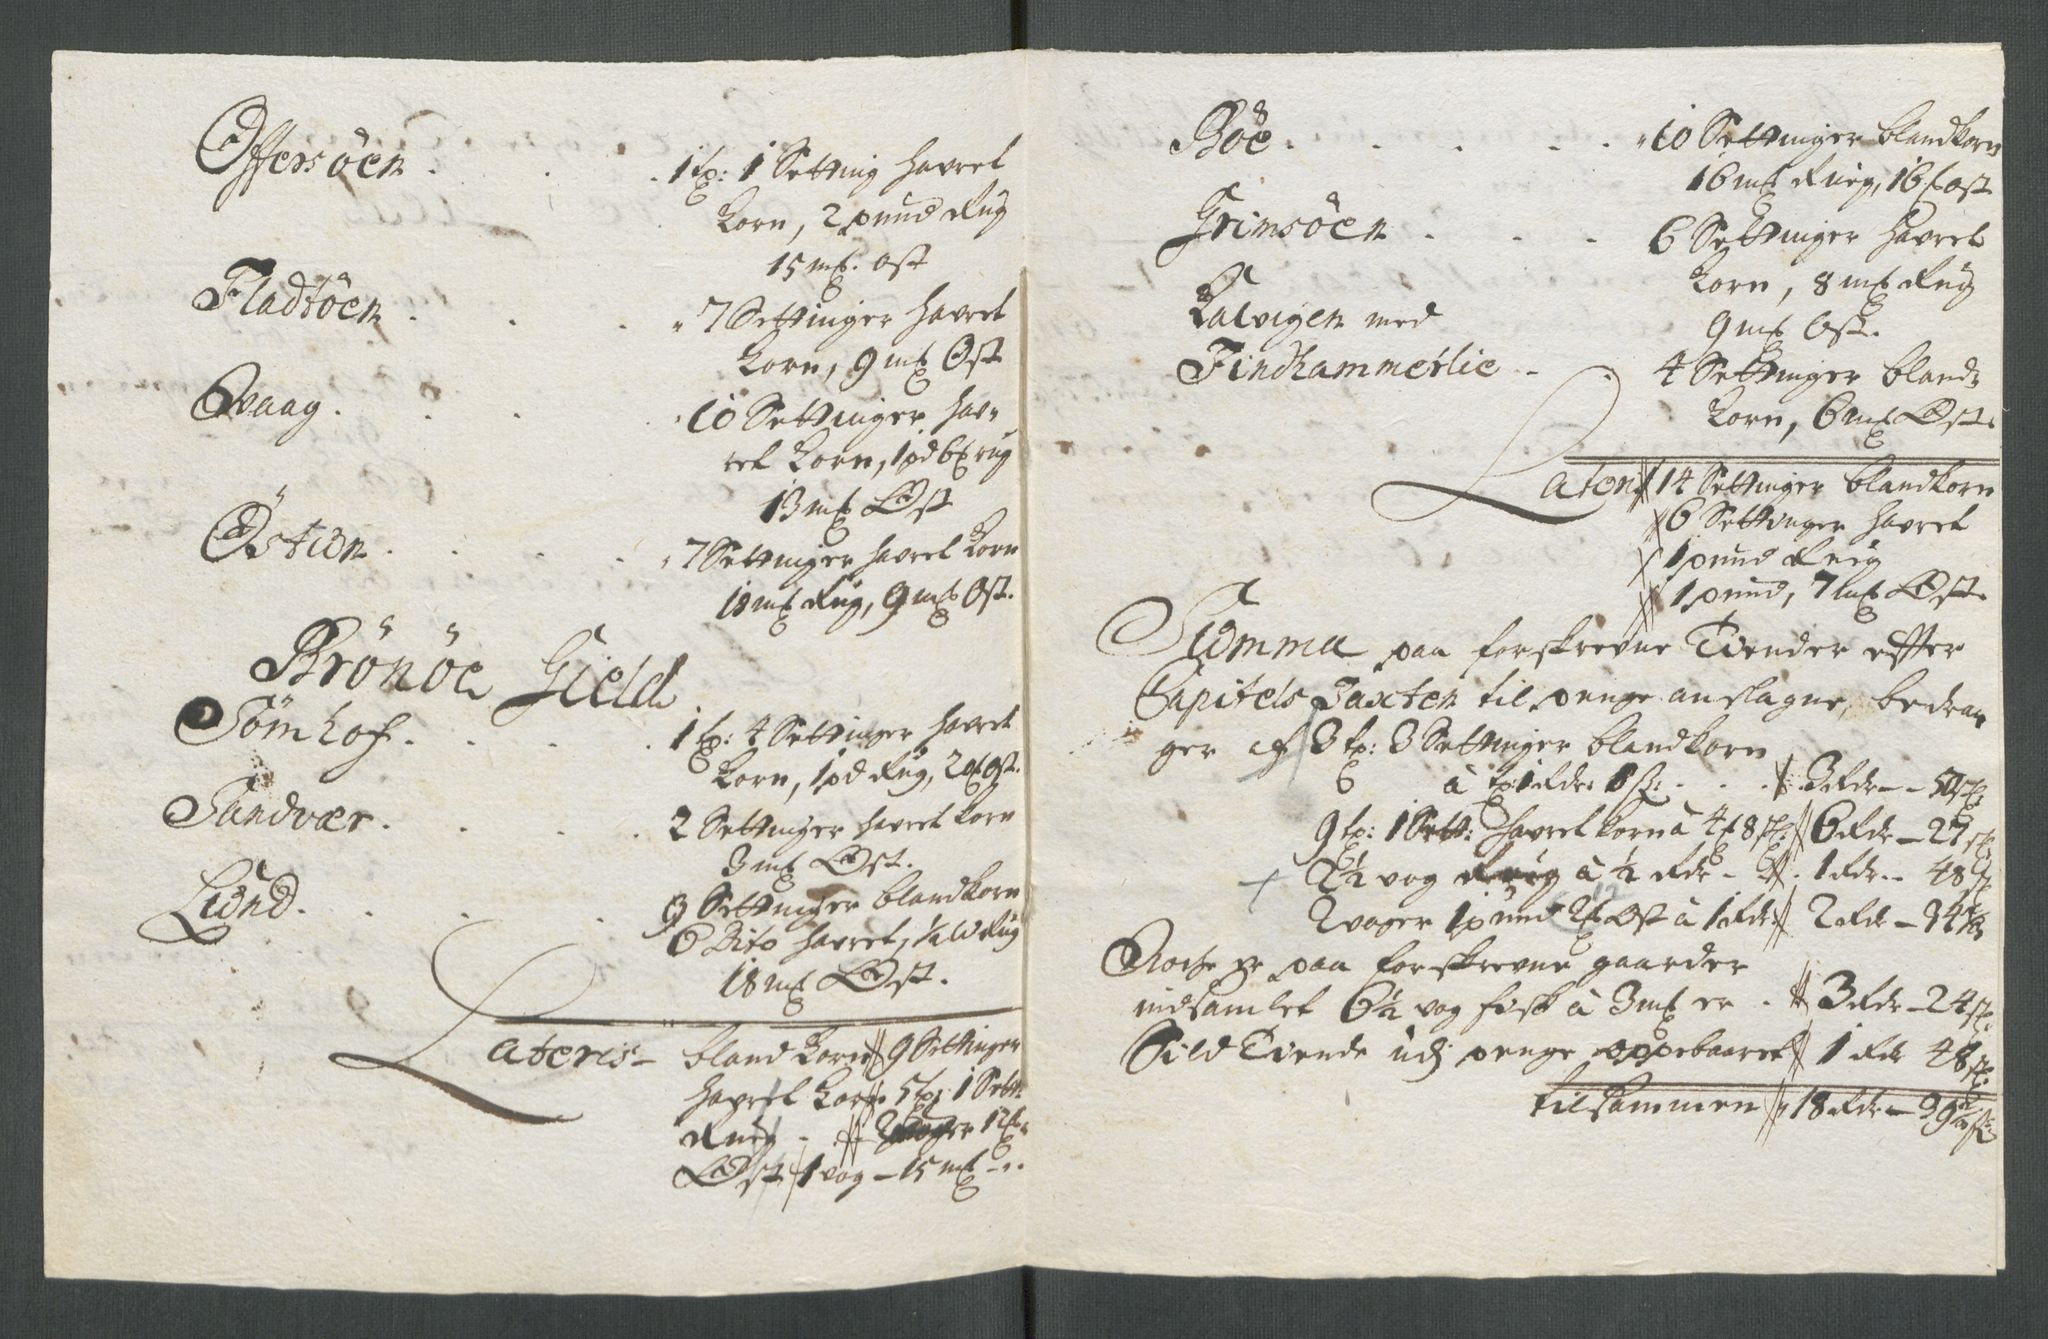 Offersöen . . . 1 tp: 1 Setting havret
Korn, 2 pund Rug
15 mk. ost
Fladtöen . . . " 7 Settinger havret
Korn, 9 mk Ost
Qvaag . . . " 10 Settinger hav-
ret Korn, 1 pd 6 mk rug
13 mk Ost
Östven . . . " 7 Settinger havret Korn
18 mk Rug, 9 mk Ost.
Brönöe Gield
Tömhof . . . 1 tp: 4 Settinger havret
Korn, 1 pd Rug, 20 mk Ost.
Sandvær . . . 2 Settinger havret Korn
3 mk Ost.
Lund . . . 9 Settinger blandkorn
6 Dito havret, 1/2 W Rug
18 mk Ost.
Lateris – bland Korn // 9 Settinger
havret Korn 5 tp: 1 Sett:
Rug . // 2 voger 12 mk
Ost // 1 vog – 15 mk
Böe . . . " 10 Settinger blandkorn
16 mk Rug, 16 mk ost
Grimsöen . . . 6 Settinger havret
Korn, 8 mk Rug
9 mk Ost.
Kalvigen med
Findhammerlie . . 4 Settinger bland
Korn, 6 mk Ost.
Lateris // 14 Settinger blandkorn
// 6 Settinger havret
// 1 pund Rug
// 1 pund, 7 mk Ost.
Summa paa forskrevne Tiender efter
Capitels Taxten til penge anslagne, bedraa
ger af 3 tp: 3 Settinger blandkorn
à tp 1 Rdr 1 ß: . . // 3 Rdr – 50 sk
9 tp: 1 Sett: havret korn à 4 mk 8 sk // 6 Rdr – 27 sk
2 1/2 vog Rug à 1/2 Rdr – // 1 Rdr – 48 sk
2 voger 1 pund 2 mk Ost à 1 Rdr // 2 Rdr – 34 2/3
12
Noch er paa forskrevne gaarder
indsamlet 6 1/2 vog fisk à 3 mk er . // 3 Rdr – 24 sk
Sild Tiende udj penge oppebaaret // 1 Rdr 48 sk
tilsammen // 18 Rdr –